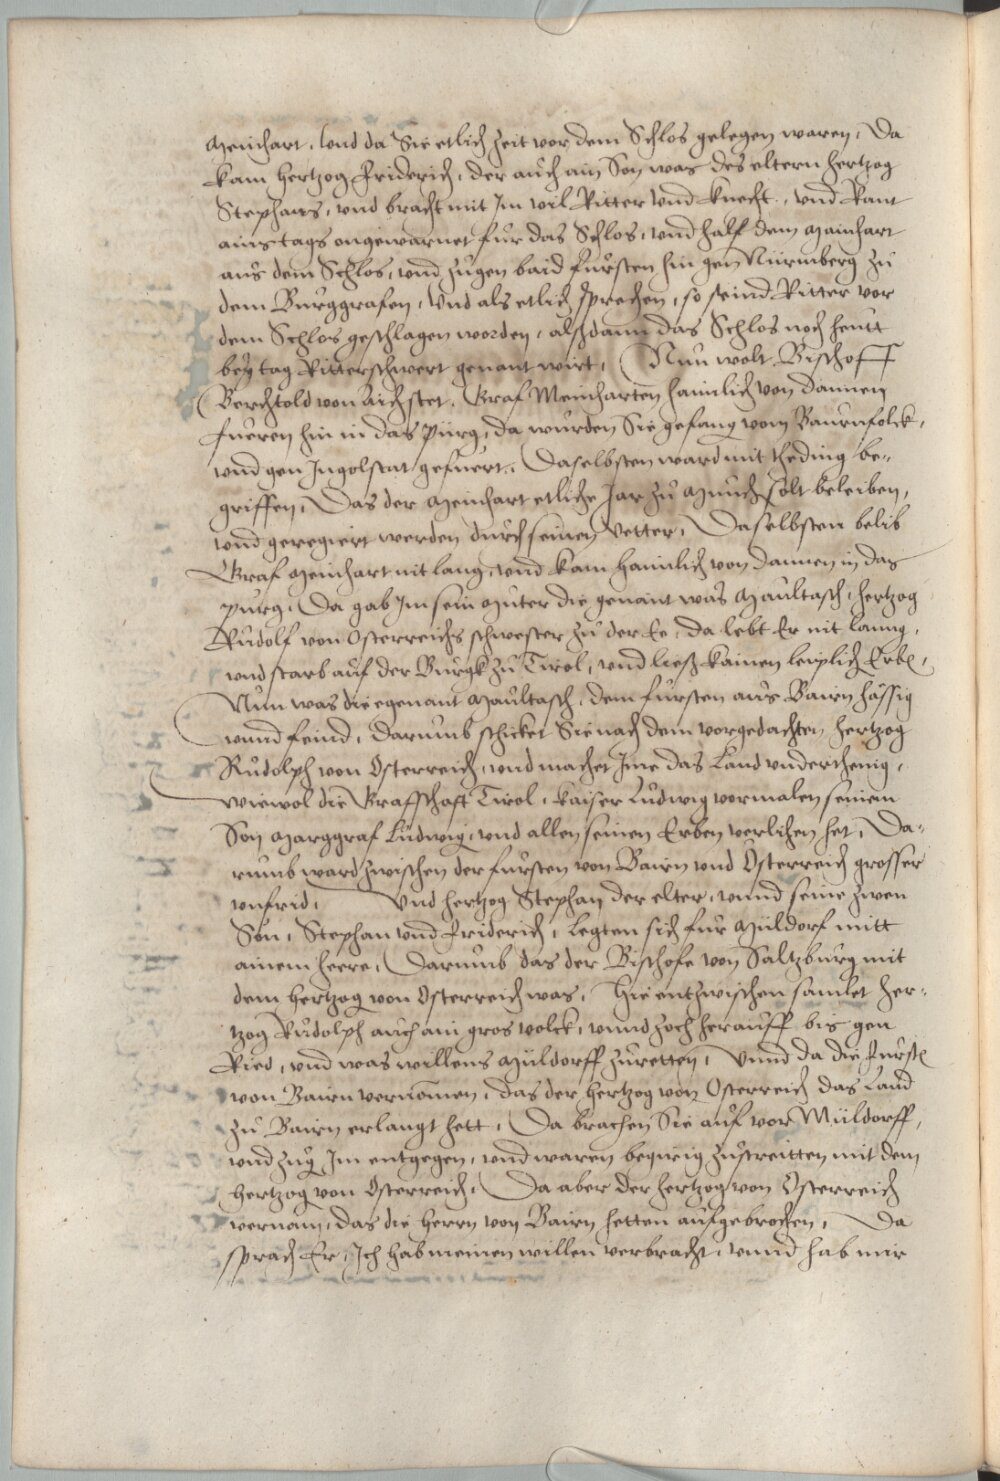 Meinhart. Und da Sie etlich zeit vor dem Schlos gelegen waren, Da
kam hertzog Friderich, der auch ain Son was des eltern hertzog
Stephans, und bracht mit Im vil Ritter und knecht, und kam
ains tags ongewarnet fur das Schlos, und half dem Mainhart
aus dem Schlos, und zugen baid fursten hin gen Nürmberg zu
dem Burggrafen, Und als etlich sprechen, so seind Ritter vor
dem Schlos geschlagen worden, alßdann das Schlos noch heutt
bey tag Ritterschwert genant wirt, Nun wolt Bischoff
Berchtold von Aichstet, Graf Meinharten hainlich von dannen
fueren hin in das pürg, da wurden Sie gefang vom Baurnfolck,
und gen Ingolstat gefuert. Daselbsten ward mit theding be-
griffen, Das der Meinhart etliche Jar zu Munch solt beleiben,
und geregiert werden durch seinen Vetter, Daselbsten belib
Graf Meinhart nit lang, und kam hainlich von dannen in das
purg, Da gab Im sein Muter die genant was Maultasch, hertzog
Rudolf von Osterreichs schwester zu der Ee, da lebt Er nit lanng,
und starb auf der Burgk zu Tirol, und ließ kainen leiplich Erbe,
Nun was die egenant Maultasch, dem fursten aus Bairn hässig
unnd feind, Darumb schicket Sie nach dem vorgedachten hertzog
Rudolph von Osterreich, und machet Ime das Land underthenig,
wiewol die Grafschaft Tirol, kaiser Ludwig vormalen seinem
Son Marggraf Ludwig, und allen seinen Erben verlihen het, Da-
rumb ward zwischen der fursten von Bairn und Osterreich grosser
unfrid, Und hertzog Stephan der elter, unnd seine zwen
Sün, Stephan und Friderich, Legten sich fur Müldorf mitt
ainem heere, Darumb das der Bischofe von Saltzburg mit
dem hertzog von Osterreich was, Hie entzwischen samlet her-
tzog Rudolph auch ain gros volck, unnd zoch herauff bis gen
Ried, und was willens Müldorff zuretten, Unnd da die furste
von Bairn vernomen, das der hertzog von Osterreich das Land
zu Bairn erlangt hett, Da brachen Sie auf vor Müldorff,
und zug Im entgegen, und waren begirig zustreitten mit dem
hertzog von Osterreich, Da aber der hertzog von Osterreich
vernam, das die herrn von Bairn hetten aufgebrochen, Da
sprach Er, Ich hab meinen willen verbracht, unnd hab mir